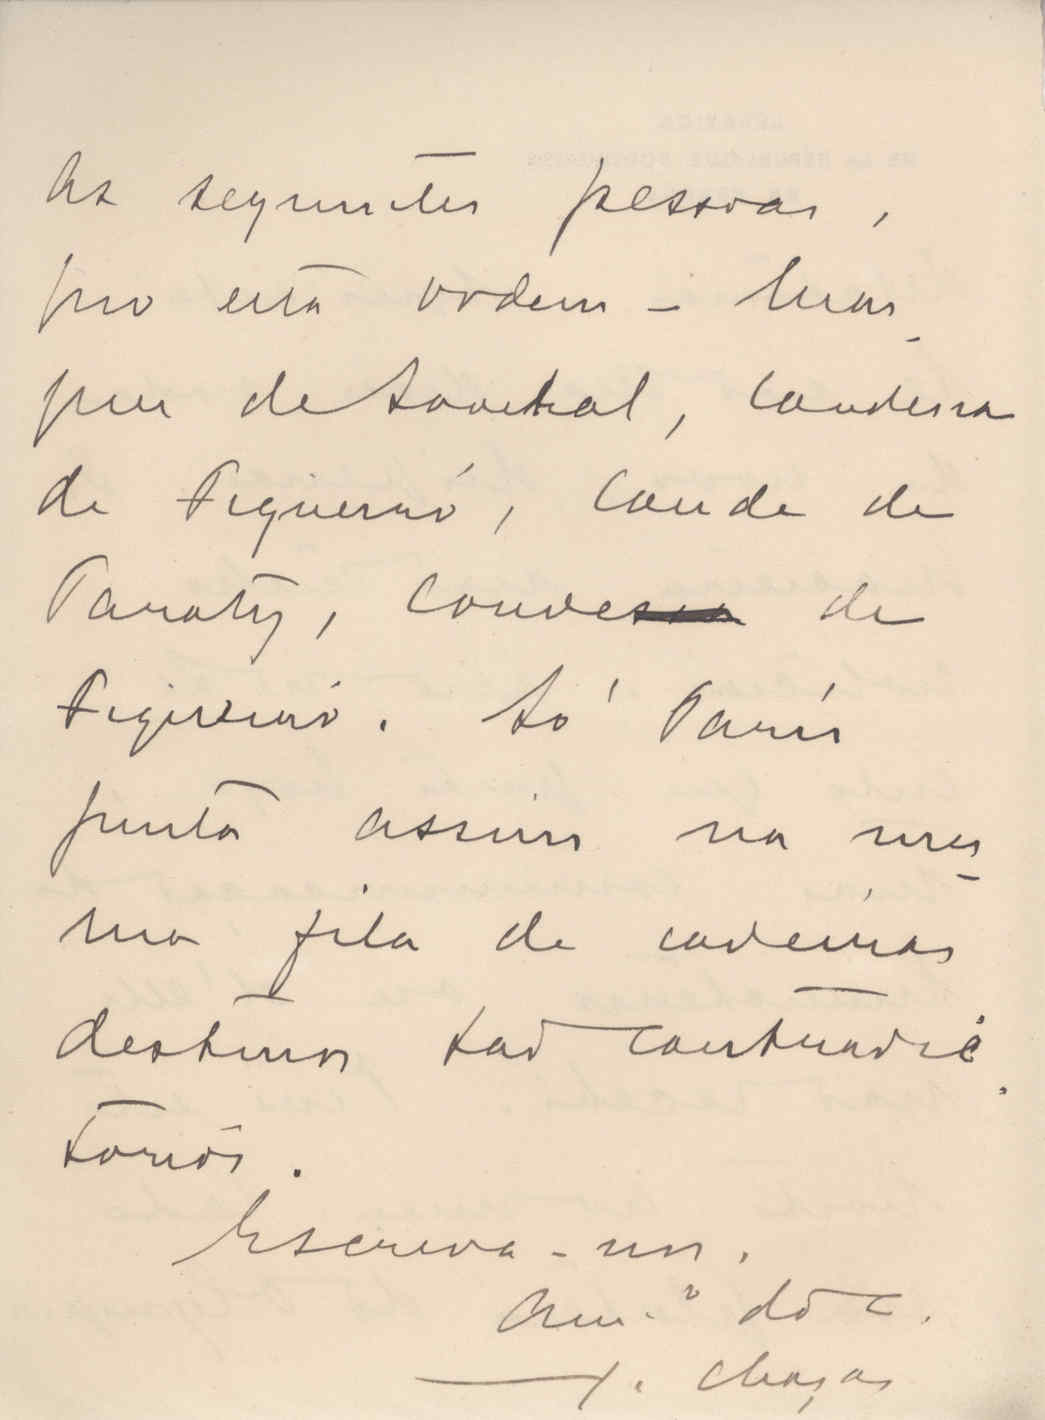 As seguintes pessoas,
por esta ordem – Mar-
quez de Soveral, Condessa
de Figueiró, Conde de
Paraty, Conde de
Figueiró. Só Paris
junta assim na mes-
ma fila de cadeiras
destinos tão contradic-
torios.
Escreva-nos.
Am.º do C.
J. Chagas